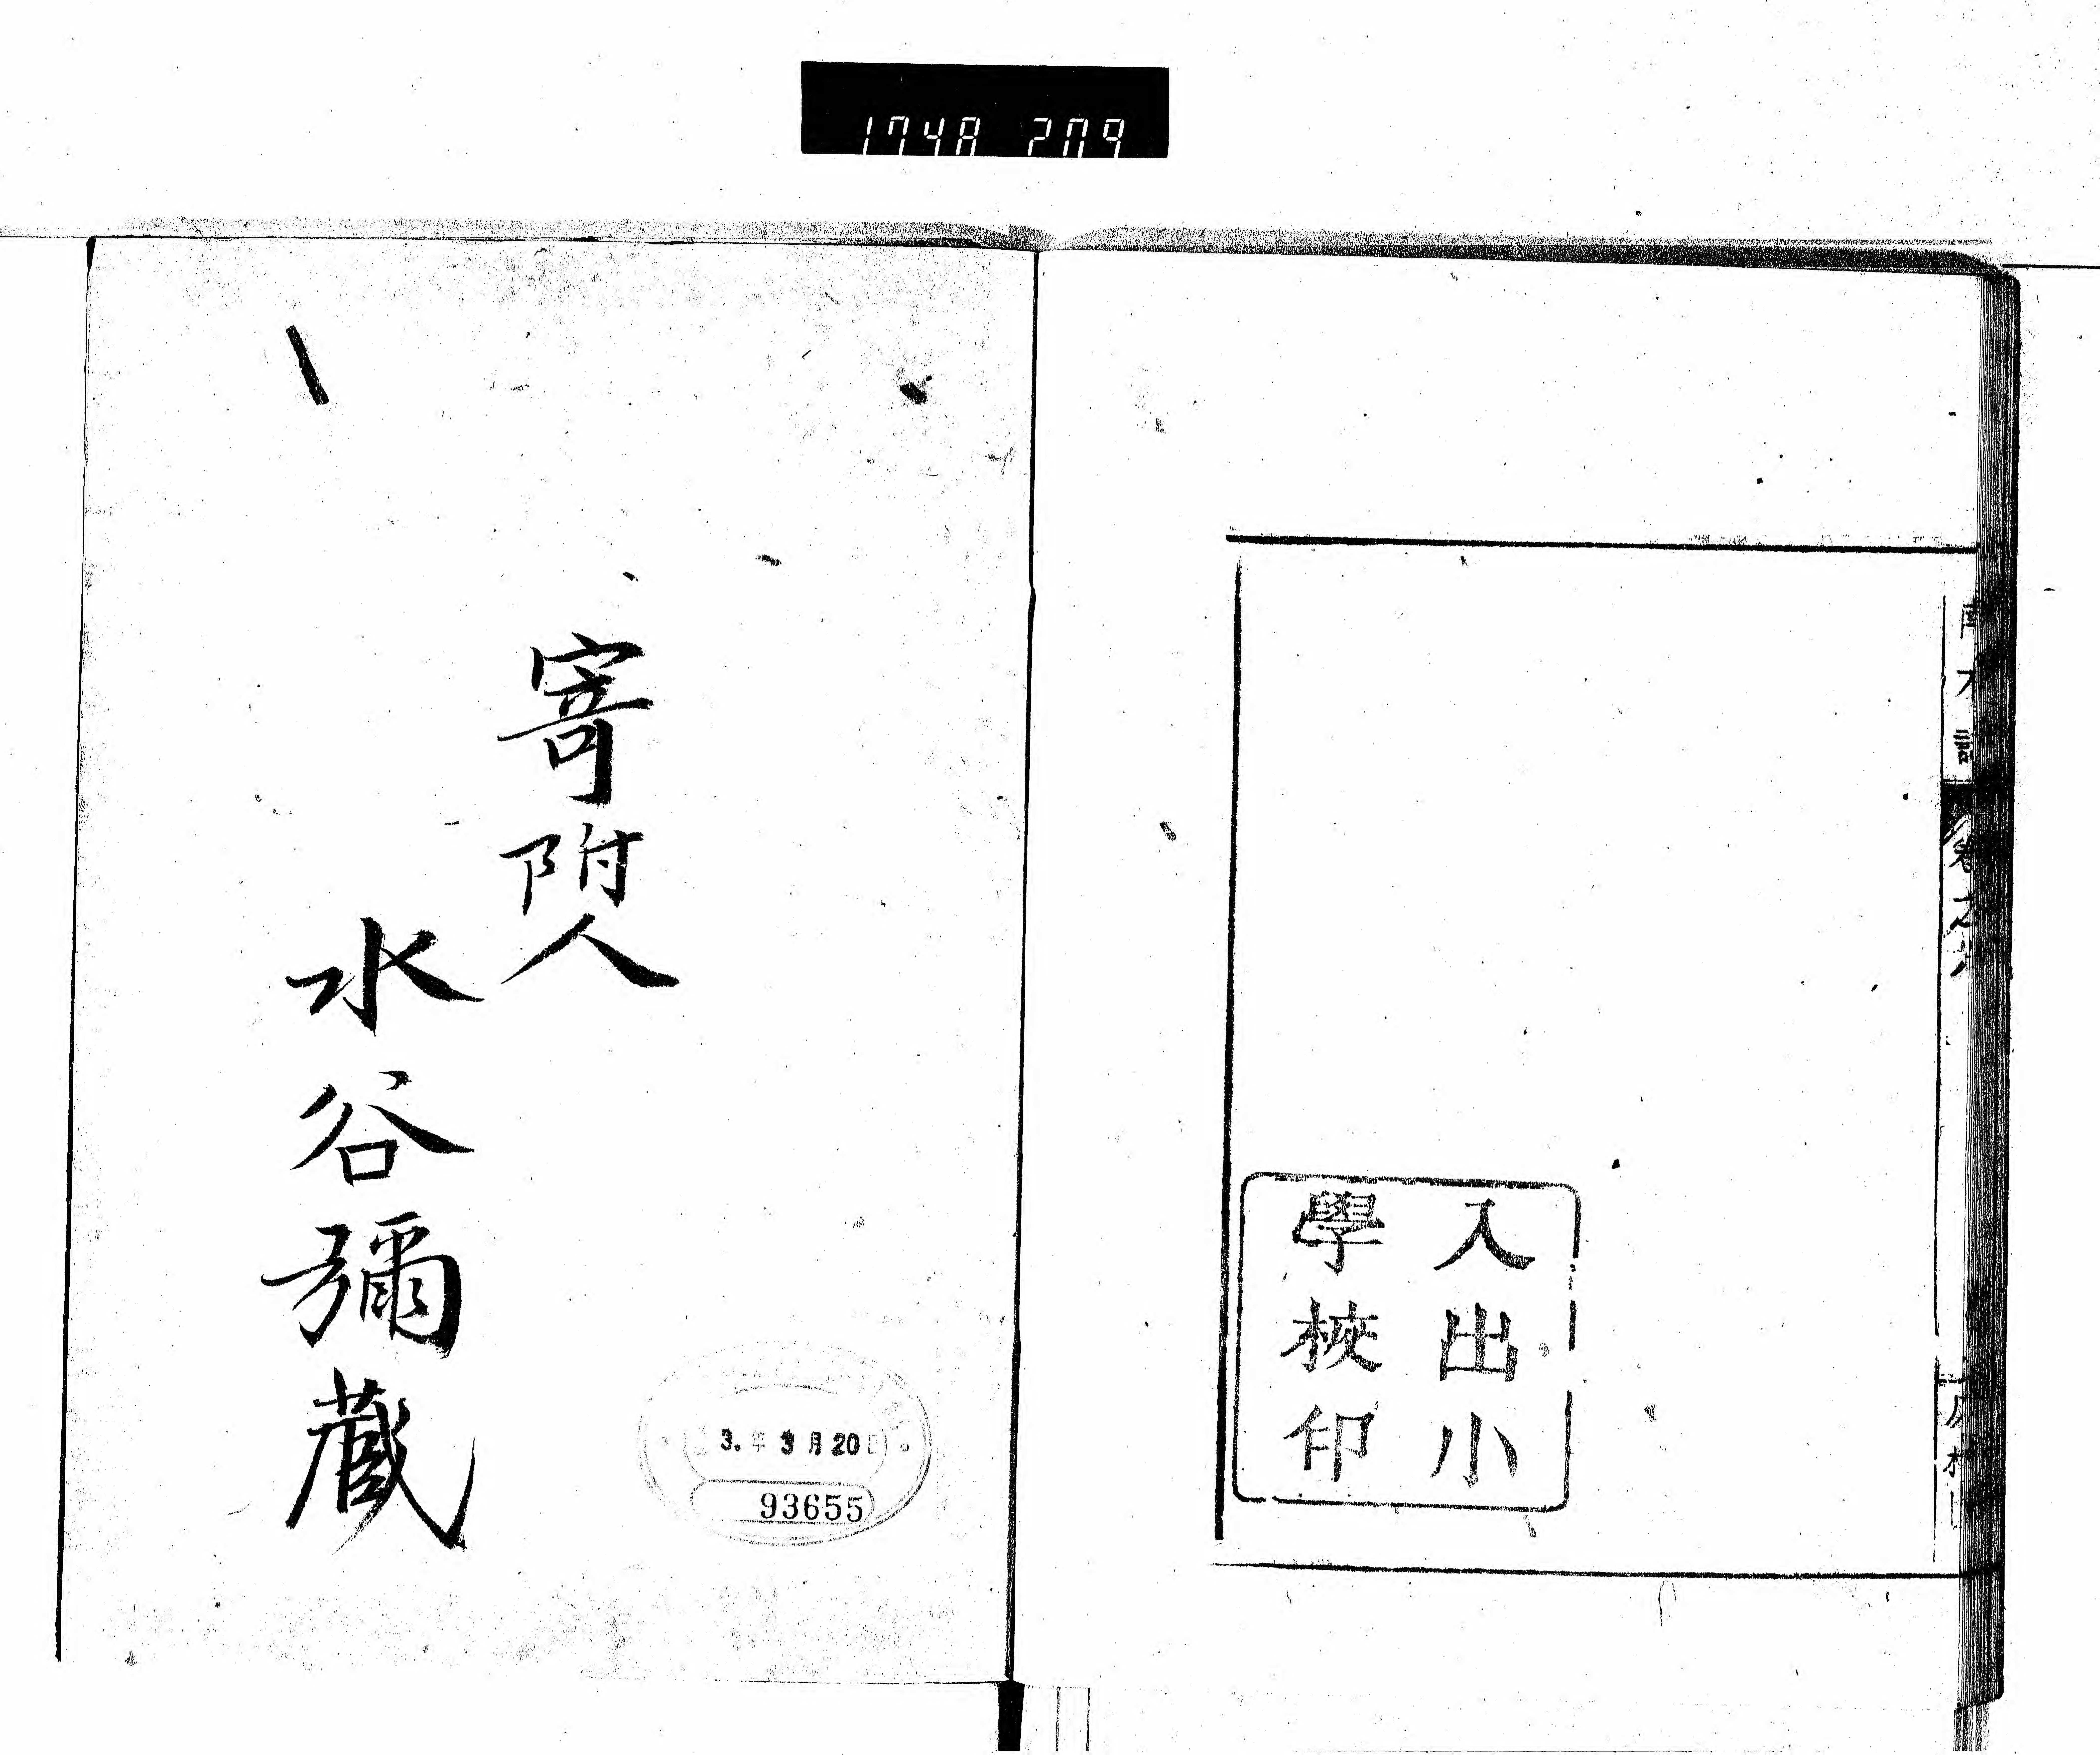 1748 209
入出小
學校印
寄附人
水谷彌藏
3.年3月20日
93655
卷之六